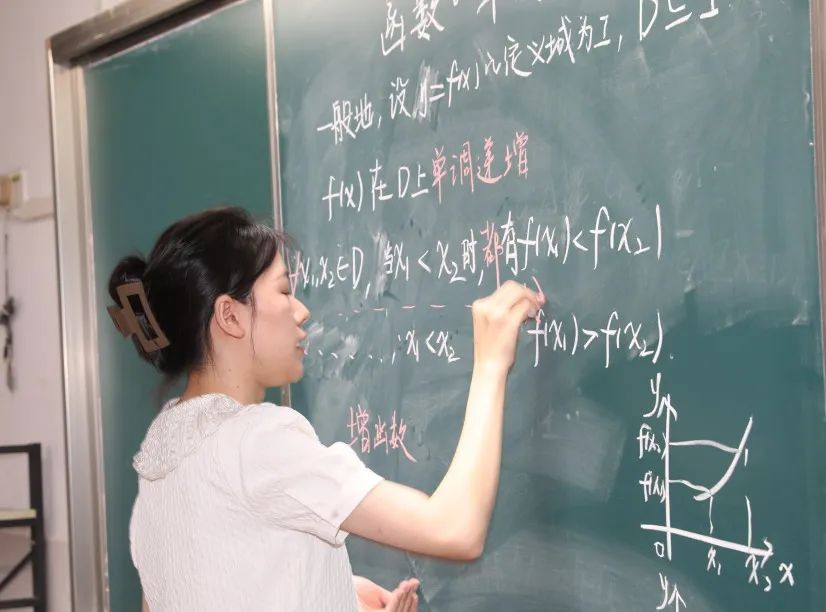 函数
一般地，设y=f(x)的定义域为I，D⊆I
f(x)在D上单调递增
∀x₁,x₂∈D，当x₁<x₂时，都有f(x₁)<f(x₂)
......，x₁<x₂ f(x₁)>f(x₂)
增函数
y
f(x₂)
f(x₁)
0 x₁ x₂ x
y